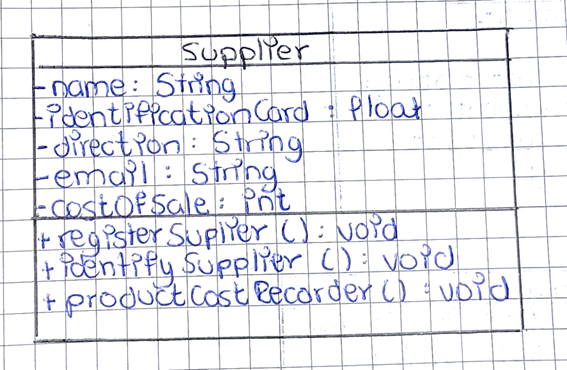 Supplier
-name: String
-identificationCard: float
-direction: String
-email: String
-costOfSale: int
+registerSuplier(): void
+identifySupplier(): void
+productCostRecorder(): void